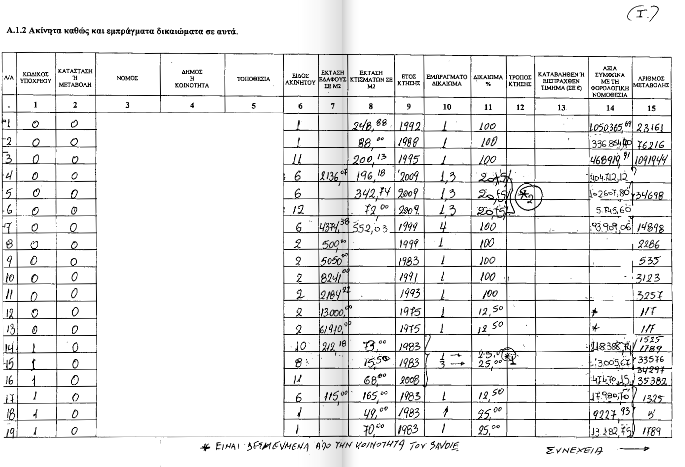 (I.)
Α.1.2 Ακίνητα καθώς και εμπράγματα δικαιώματα σε αυτά.
Α/Α ΚΩΔΙΚΟΣ ΥΠΟΧΡΕΟΥ ΚΑΤΑΣΤΑΣΗ Ή ΜΕΤΑΒΟΛΗ ΝΟΜΟΣ ΔΗΜΟΣ Ή ΚΟΙΝΟΤΗΤΑ ΤΟΠΟΘΕΣΙΑ ΕΙΔΟΣ ΑΚΙΝΗΤΟΥ ΕΚΤΑΣΗ ΕΔΑΦΟΥΣ ΣΕ Μ2 ΕΚΤΑΣΗ ΚΤΙΣΜΑΤΩΝ ΣΕ Μ2 ΕΤΟΣ ΚΤΗΣΗΣ ΕΜΠΡΑΓΜΑΤΟ ΔΙΚΑΙΩΜΑ ΔΙΚΑΙΩΜΑ % ΤΡΟΠΟΣ ΚΤΗΣΗΣ ΚΑΤΑΒΛΗΘΕΝ Ή ΕΙΣΠΡΑΧΘΕΝ ΤΙΜΗΜΑ (ΣΕ €) ΑΞΙΑ ΣΥΜΦΩΝΑ ΜΕ ΤΗ ΦΟΡΟΛΟΓΙΚΗ ΝΟΜΟΘΕΣΙΑ ΑΡΙΘΜΟΣ ΜΕΤΑΒΟΛΗΣ
. 1 2 3 4 5 6 7 8 9 10 11 12 13 14 15
1 0 0 1 248,88 1992 1 100 23161
2 0 0 1 88,00 1988 1 100 76216
3 0 0 11 200,13 1995 1 100 1091944
4 0 0 6 196,18 2009 1,3 20,5
5 0 0 6 342,74 2009 1,3 20,5 34698
6 0 0 12 72,00 2009 1,3 20,5 5.745,60
7 0 0 6 552,03 1999 4 100 14898
8 0 0 2 500,00 1999 1 100 2286
9 0 0 2 5050,00 1983 1 100 535
10 0 0 2 8241,00 1991 1 100 3123
11 0 0 2 2184,22 1993 1 100 3257
12 0 0 2 13000,00 1975 1 12,50 * 117
13 0 0 2 61910,00 1975 1 12,50 * 117
14 1 0 10 212,18 73,00 1983 1 25,00 1525 1789
15 1 0 8 15,50 1983 3 25,00 33576
16 1 0 11 68,00 2008 34297 35382
17 1 0 6 115,00 165,00 1983 1 12,50 17.980,70 1325
18 1 0 1 49,00 1983 1 25,00 9227,93
19 1 0 1 70,00 1983 1 25,00 13.182,75 1789
* ΕΙΝΑΙ ΔΕΣΜΕΥΜΕΝΑ ΑΠΟ ΤΗΝ ΚΟΙΝΟΤΗΤΑ ΤΟΥ
ΣΥΝΕΧΕΙΑ →